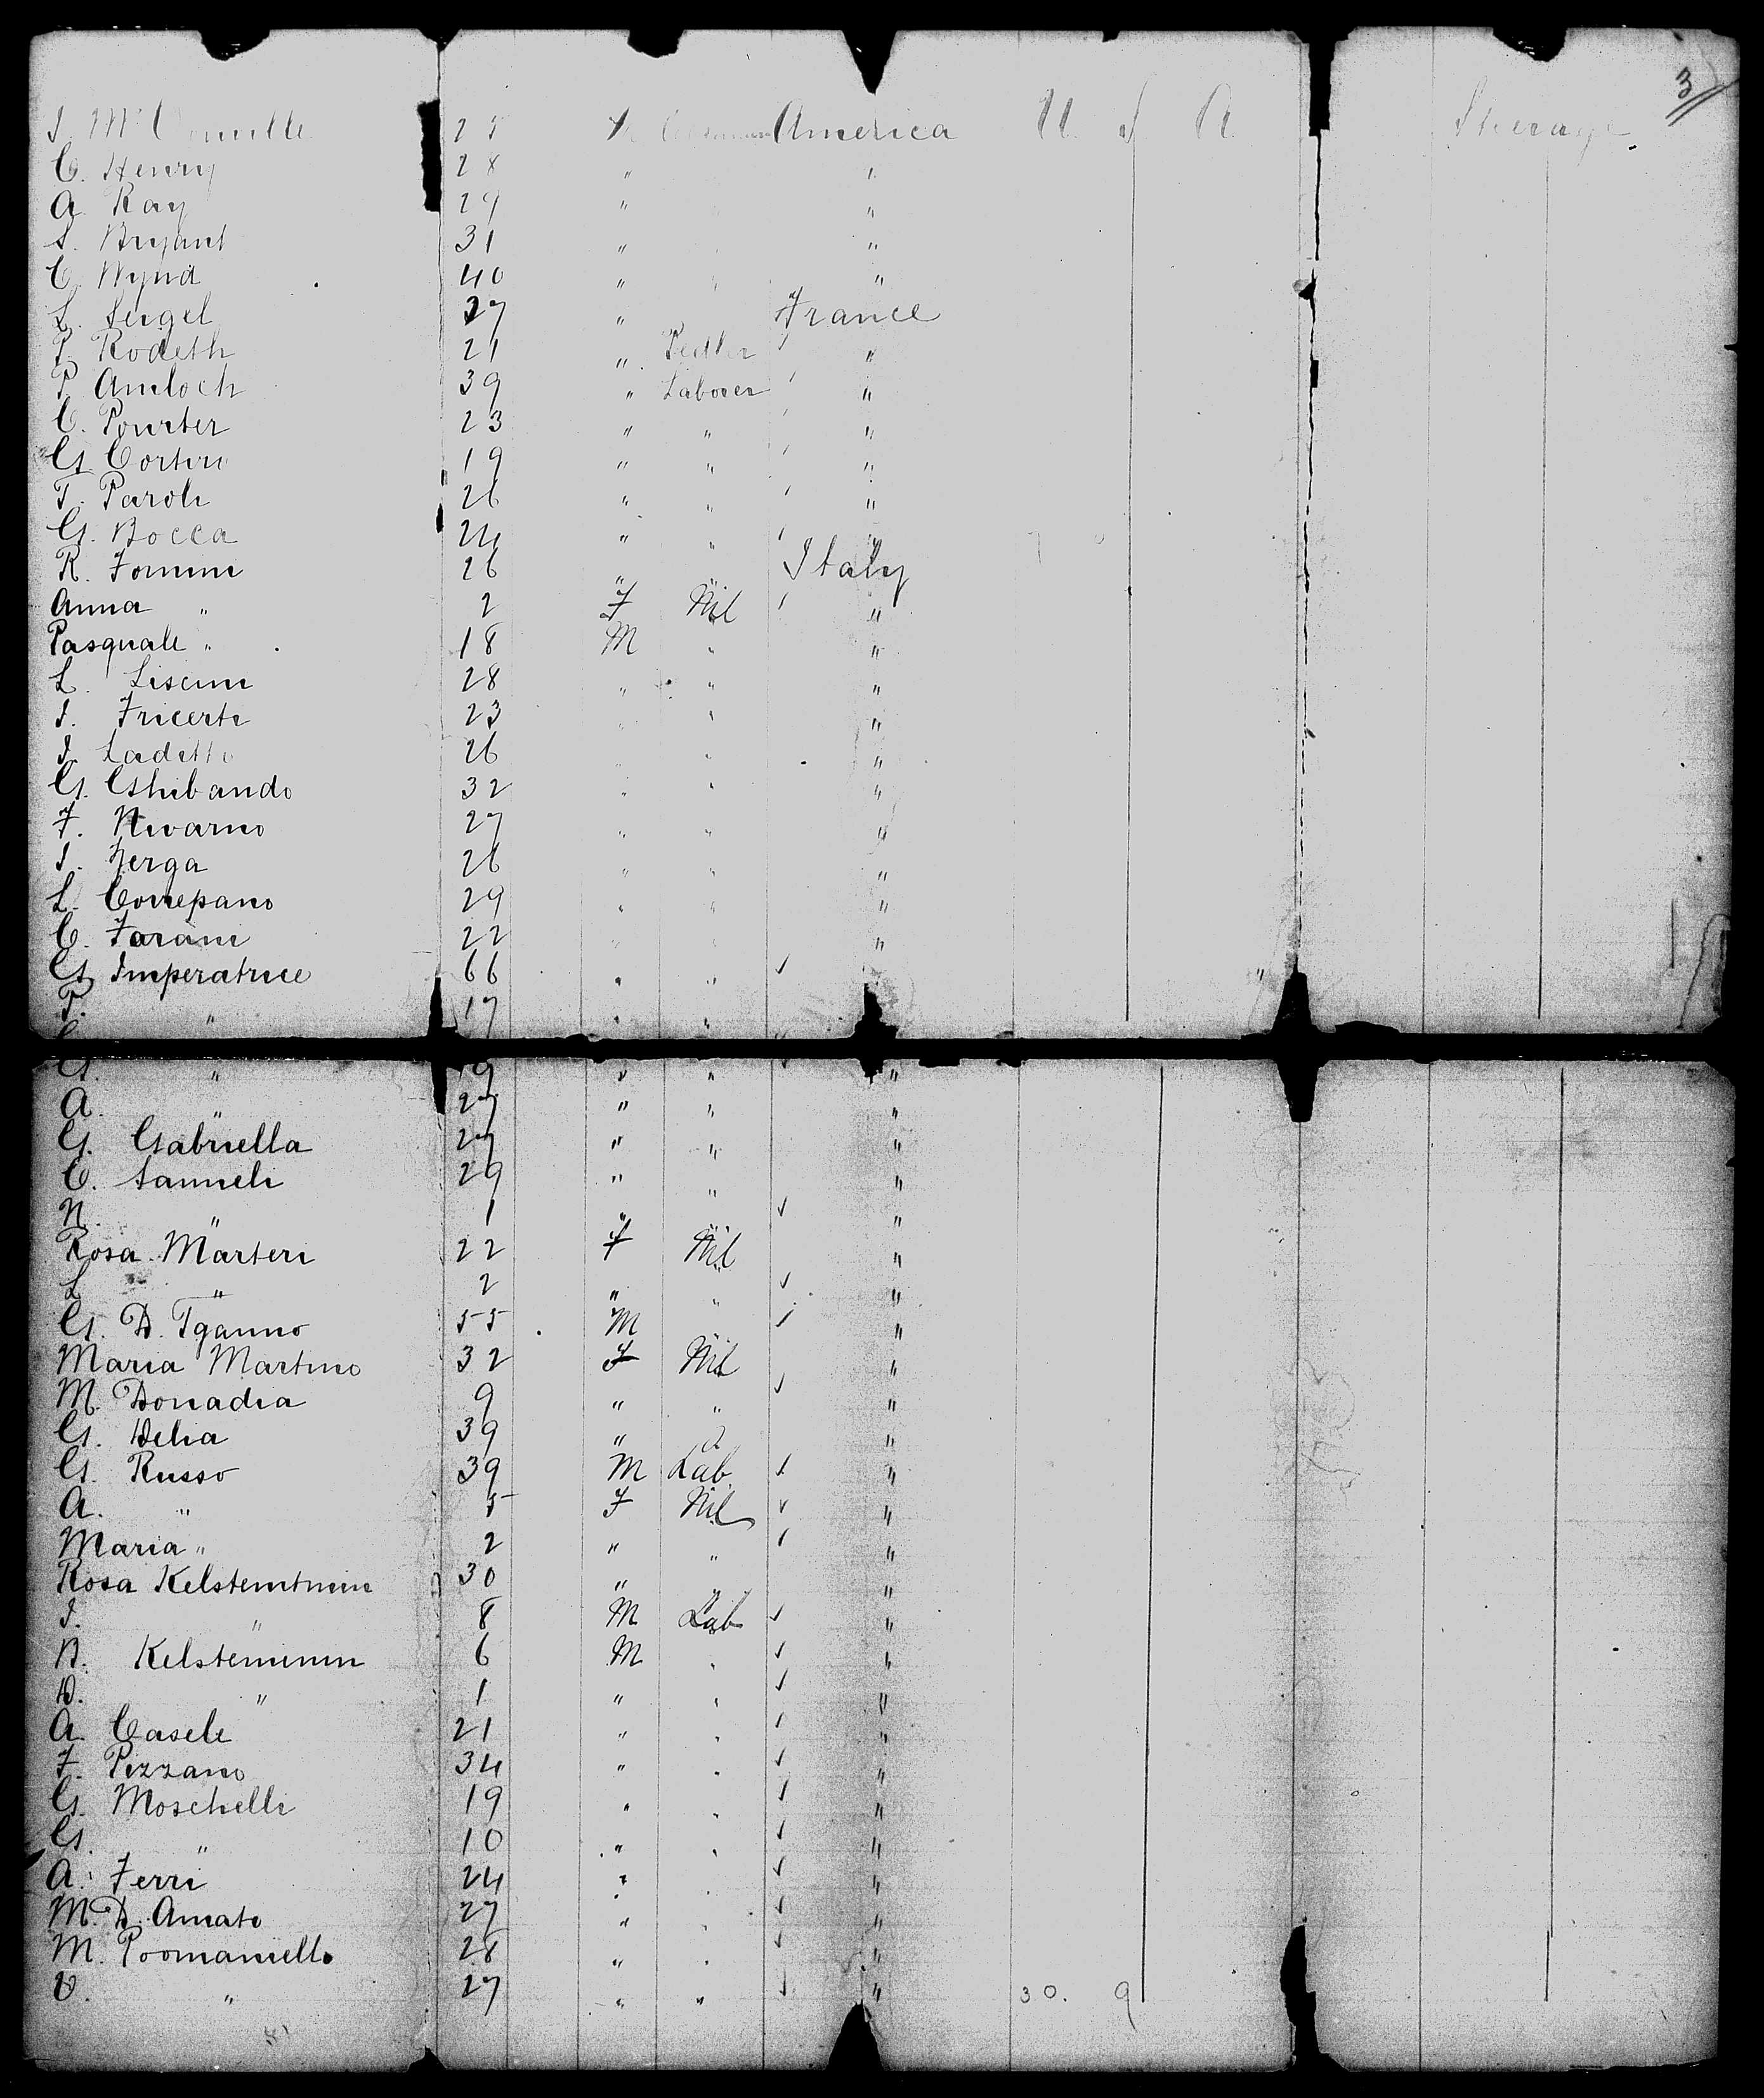 3
25 America U S A Steerage
C. Henry 28 " "
A Ray 29 " "
S. Bryant 31 " "
C. Wynd 40 " "
L. Seigel 27 " France
P. Rodeth 21 " Pedler "
P. Amloch 39 " Laborer "
C. Pourter 23 " " "
G. Corteri 19 " " "
T. Paroli 26 " " "
G. Bocca 24 " " "
R. Fomini 26 " " Italy
Anna " 2 F Nil "
Pasquale " 18 M " "
L. Liscini 28 " " "
I. Fricerti 23 " " "
I. Ladetto 26 " " "
G. Ghibando 32 " " "
F. Nivarno 27 " " "
I. Zerga 26 " " "
L. Correpano 29 " " "
C. Farani 22 " " "
G. Imperatrice 66 " " "
P. " 17 " "
G. " 19 " " "
A. " 27 " " "
G. Gabriella 27 " " "
C. Sanneli 29 " " "
N. " 1 " "
Rosa Marteri 22 F Nil "
L " 2 " " "
G. D. Iganno 55 M " "
Maria Martino 32 F Nil "
M. Donadia 9 " " "
G. Delia 39 " " "
G. Russo 39 M Lab "
A. " 5 F Nil "
Maria " 2 " " "
Rosa Kelstemtnini 30 " " "
I. " 8 M Lab "
B. Kelsteminin 6 M " "
D. " 1 " " "
A. Caseli 21 " " "
F. Pizzano 34 " " "
G. Moschelli 19 " " "
G. " 10 " " "
A. Ferri 24 " " "
M. D. Amato 27 " " "
M. Poomaniello 28 " " "
V. " 27 " " " 30. 9